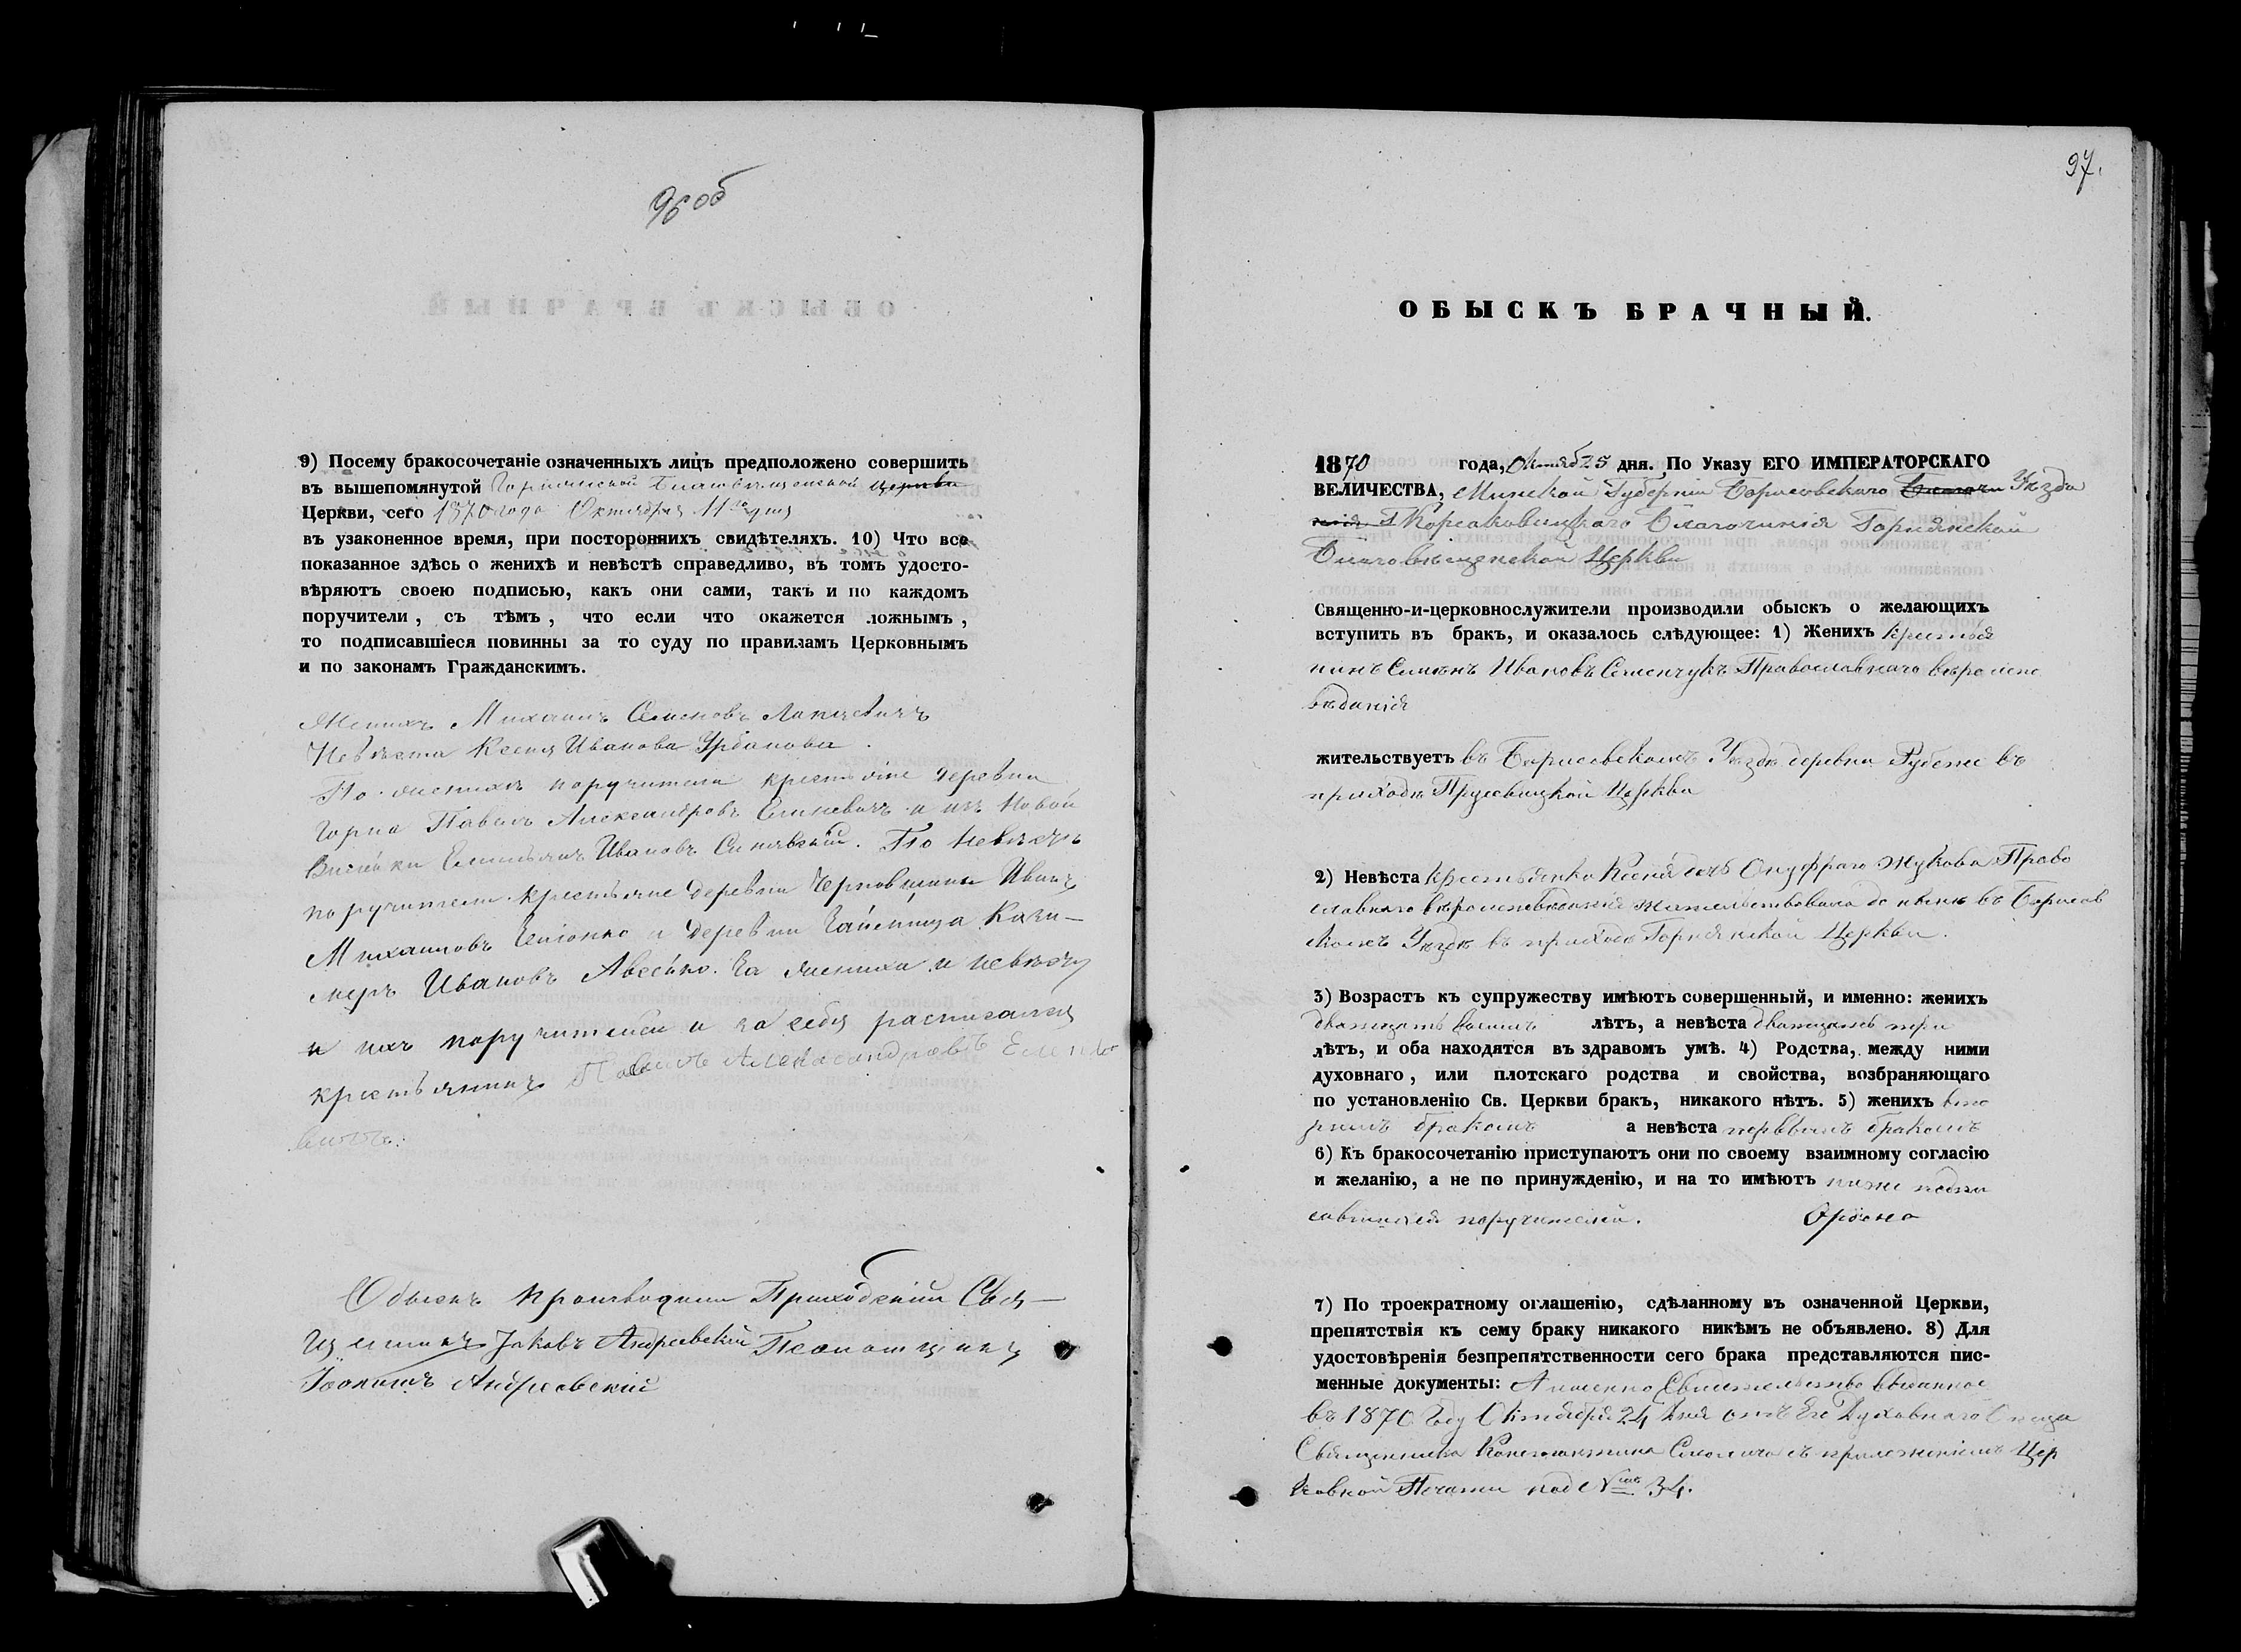 96об
9) Посему бракосочетаніе означенныхъ лицъ предположено совершить
въ вышепомянутой Горнянской Благовѣщенской церкви
Церкви, сего 1870 года Октября 11го дня
въ узаконенное время, при постороннихъ свидѣтеляхъ. 10) Что все
показанное здѣсь о женихѣ и невѣстѣ справедливо, въ томъ удосто-
вѣряютъ своею подписью, какъ они сами, такъ и по каждомъ
поручители, съ тѣмъ, что если что окажется ложнымъ,
то подписавшіеся повинны за то суду по правиламъ Церковнымъ
и по законамъ Гражданскимъ.
Женихъ Михаилъ Семеновъ
Невѣста Ксенія Иванова Урбанова
По женихѣ поручители крестьяне деревни
Горна Павелъ Александровъ и изъ Новой
Ивановъ Синявскій. По невѣстѣ
поручители крестьяне деревни Черновщины Иванъ
Михаиловъ и деревни Кази-
меръ Ивановъ За жениха и невѣсту
и ихъ поручителей и за себя расписался
крестьянинъ Павелъ Александровъ
Обыскъ производили Приходскій Свя-
щенникъ Іаковъ Андреевскій Псаломщикъ
Андреевскій
97.
ОБЫСКЪ БРАЧНЫЙ.
1870 года, Октяб 25 дня. По Указу ЕГО ИМПЕРАТОРСКАГО
ВЕЛИЧЕСТВА, Минской Губерніи Борисовскаго Уѣзда
Корсаковицкаго Благочинія Горнянской
Благовѣщенской Церкви
Священно-и-церковнослужители производили обыскъ о желающихъ
вступить въ бракъ, и оказалось слѣдующее: 1) Женихъ крестья
нинъ Ивановъ Семенчукъ Православнаго вѣроиспо
вѣданія
жительствуетъ въ Борисовскомъ Уѣздѣ деревни Рубеже въ
приходѣ Церкви
2) Невѣста крестьянка Ксенія дочь Онуфрія Жукова Право
славнаго вѣроисповѣданія жительствовала до нынѣ въ Борисов
скомъ Уѣздѣ въ приходѣ Горнянской Церкви.
3) Возрастъ къ супружеству имѣютъ совершенный, и именно: женихъ
лѣтъ, а невѣста двадцать три
лѣтъ, и оба находятся въ здравомъ умѣ. 4) Родства, между ними
духовнаго, или плотскаго родства и свойства, возбраняющаго
по установленію Св. Церкви бракъ, никакого нѣтъ. 5) женихъ вто
рымъ бракомъ а невѣста первымъ бракомъ
6) Къ бракосочетанію приступаютъ они по своему взаимному согласію
и желанію, а не по принужденію, и на то имѣютъ ниже подпи
савшихся поручителей.
7) По троекратному оглашенію, сдѣланному въ означенной Церкви,
препятствія къ сему браку никакого никѣмъ не объявлено. 8) Для
удостовѣренія безпрепятственности сего брака представляются пис-
менные документы: А именно Свидѣтельство выданное
въ 1870 году Октября 24 дня отъ Его Духовнаго Отца
Священника Константина съ приложеніемъ Цер
ковной Печати под № 34.